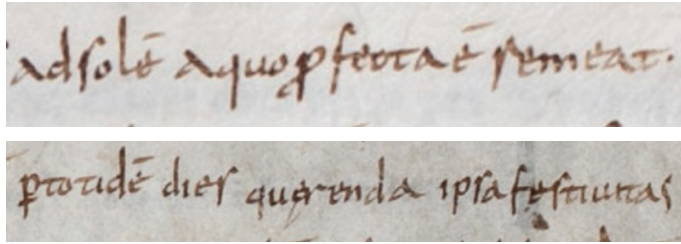 ad solē a quo ꝓfecta ē remeat·
ꝑ totidē dies quęrenda ipsa festiuitas